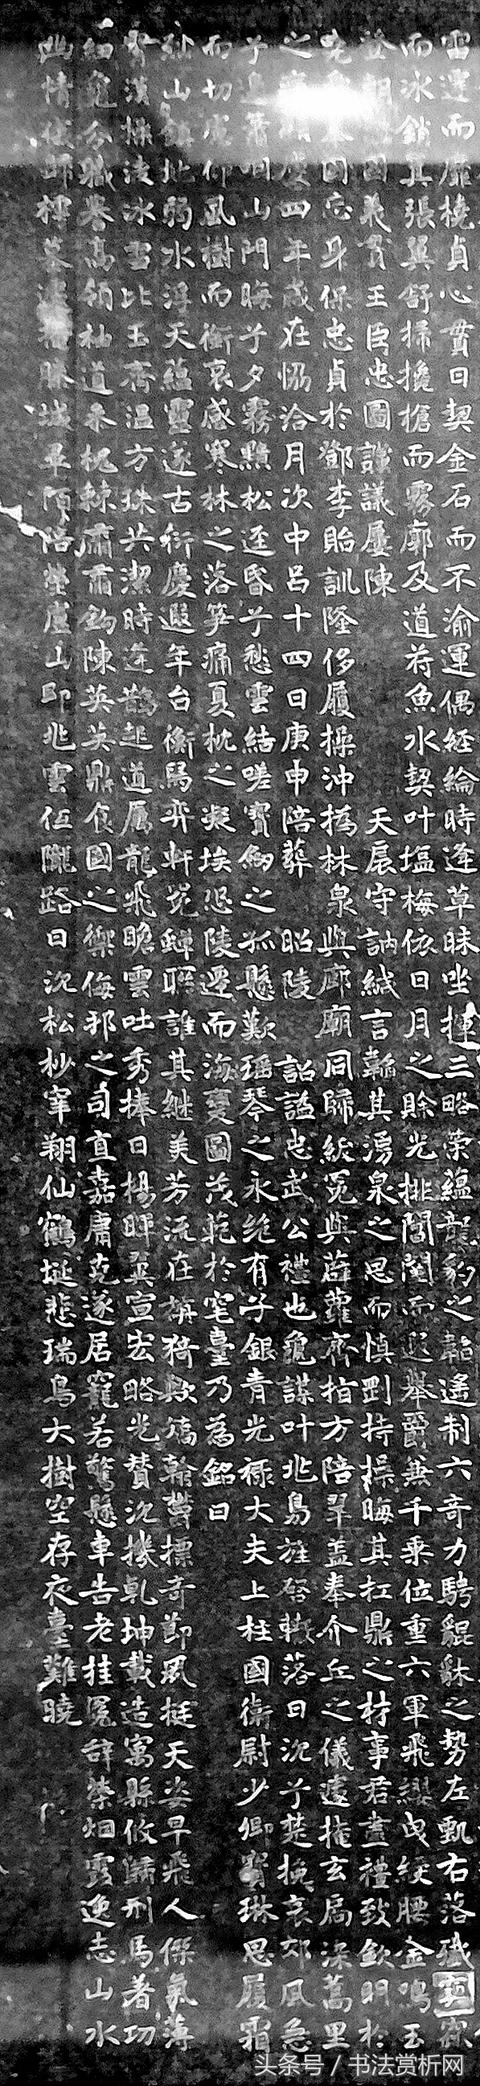 雷邁而靡撓貞心貫日契金石而不渝運偶經綸時逢草昧坐揮三略蘊龍豹之韜遙制六奇力騁貔貅之勢左甄右落殲寇
而冰銷冀張翼舒掃攙搶而霧廓及道符魚水契叶塩梅依日月之餘光排閶闔而遐舉爵兼千乘位重六軍飛纓曳綬腰金鳴玉
登朝國義實王臣忠圖讜議屢陳 天扆守訥緘言韜其湧泉之思而慎罰持操晦其扛鼎之材事君盡禮致欽明於
忘身保忠貞於鄧李貽訓隆侈履操沖撝林泉與廊廟同歸紱冕與薜蘿齊指方陪翠蓋奉介丘之儀遽掩玄扃深蒿里
之慶四年歲在協洽月次中呂十四日庚申陪葬 昭陵 詔謚忠武公禮也龜謀叶兆鳥旌啓轍落日沉兮楚挽哀郊風急
兮邊簫咽山門晦兮夕霧黯松逕昏兮愁雲結嗟寶劒之孤懸歎瑤琴之永絕有子銀青光祿大夫上柱國衛尉少卿寶琳思履霜
而切慮仰風樹而銜哀感寒林之落笋痛夏枕之凝埃恐陵遷而海變圖茂範於穹臺乃為銘曰
烈山鎮地弱水浮天蘊靈邃古衍慶遐年台衡舄弈軒冕蟬聯誰其繼美芳流在旃猗歟碩幹標奇節夙挺天姿早飛人傑氣薄
霄漢操淩冰雪比玉齊溫方珠共潔時逢鵲起道屬龍飛瞻雲吐秀捧日揚暉爰宣宏略光贊沉機乾坤載造寓縣攸歸刑馬著功
細寵分職譽高領袖道永杞棘肅肅鉤陳英英鼎食國之禦侮邦之司直嘉庸克遂居寵若驚懸車告老挂冕辭榮烟霞逸志山水
幽情勝城卑陌陪塋盧山即兆雲低隴路日沉松杪宰翔仙鶴埏悲瑞鳥大樹空存衣臺難曉
头条号 / 书法赏析网